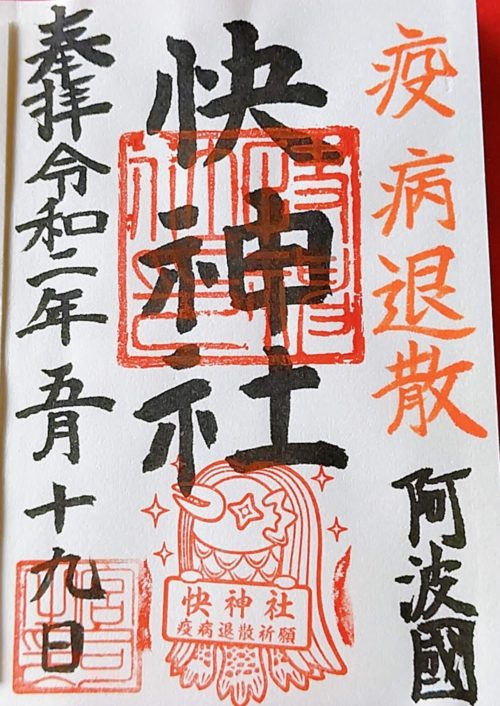 疫病退散
阿波國
快神社
奉拝令和二年五月十九日
快神社
疫病退散祈願